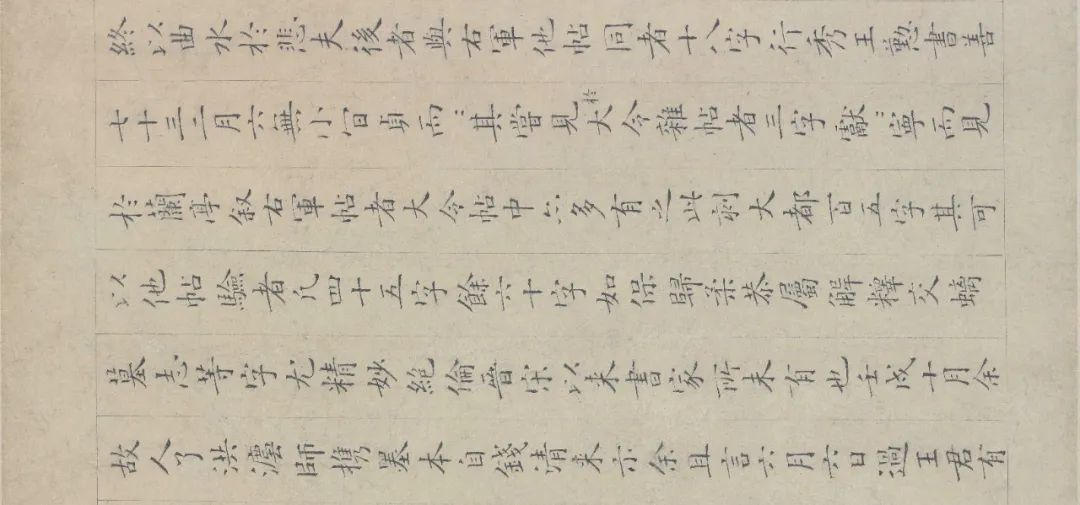 終以曲水於悲夫後者與右軍他帖同者十八字行秀王懃書善
七十三二月六無小貞而〻其嘗見於大令雜帖者三字獻〻寧而見
於蘭亭叙右軍帖者大令帖中亦多有之此刻大都百五字其可
以他帖驗者凡四十五字餘六十字如保歸柔恭屬解釋交螭
墓志等字尤精妙絕倫晉宋以来書家所未有也壬戌十月余
故人了洪澐師攜墨本自錢清来示余且言六月六日過王君有